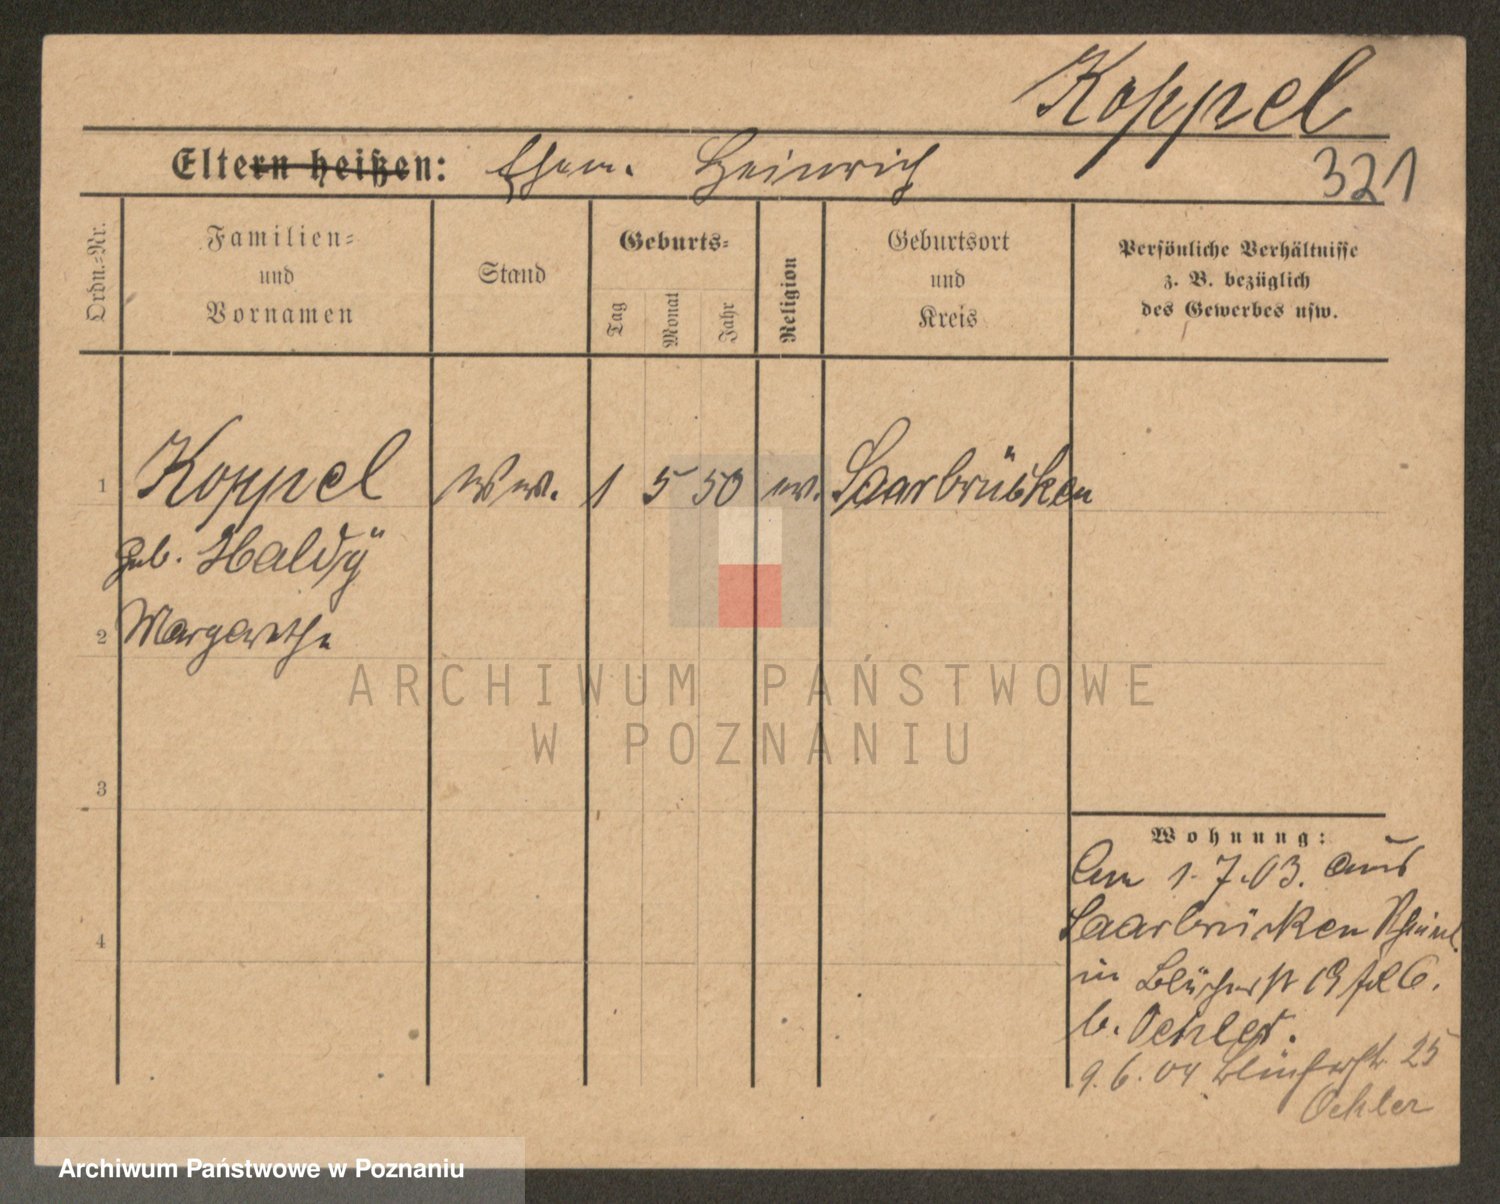 Koppel
321
Eltern heißen: Ehem. Heinrich
Ordn.-Nr.
Familien-
und
Vornamen
Stand
Geburts-
Tag
Monat
Jahr
Religion
Geburtsort
und
Kreis
Persönliche Verhältnisse
z. B. bezüglich
des Gewerbes usw.
1 Koppel Ww. 1 5 50 ev. Saarbrücken
geb. Haldÿ
2 Margarethe
3
4
Wohnung:
Am 1.7.03. aus
Saarbrücken Rheinl.
in Blücherst 19
b. Oehler.
9.6.04 Blücherstr. 25
Oehler
ARCHIWUM PAŃSTWOWE
W POZNANIU
Archiwum Państwowe w Poznaniu